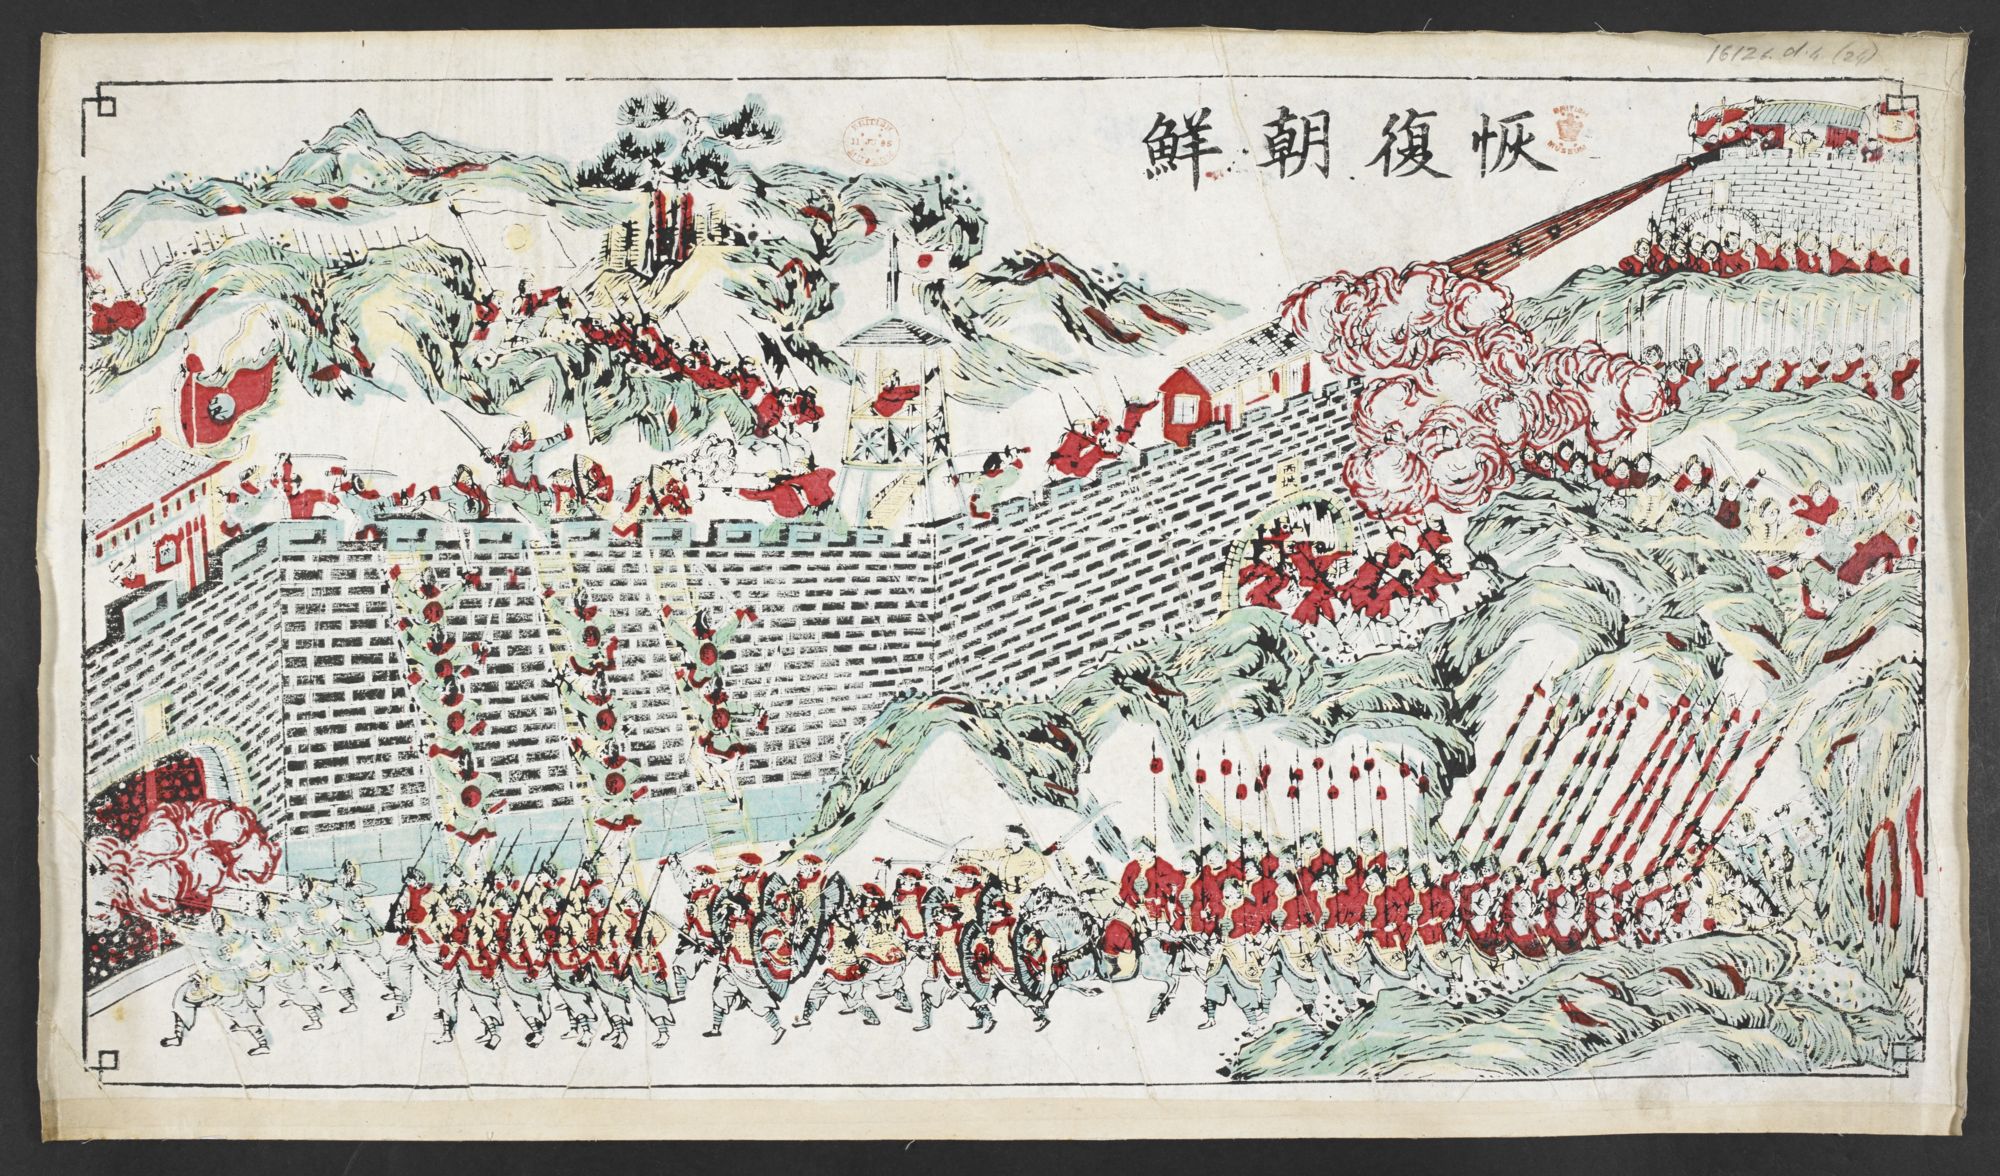 恢復朝鮮
16126.d.4.(24)
BRITISH
MUSEUM
BRITISH
11 JU 95
MUSEUM